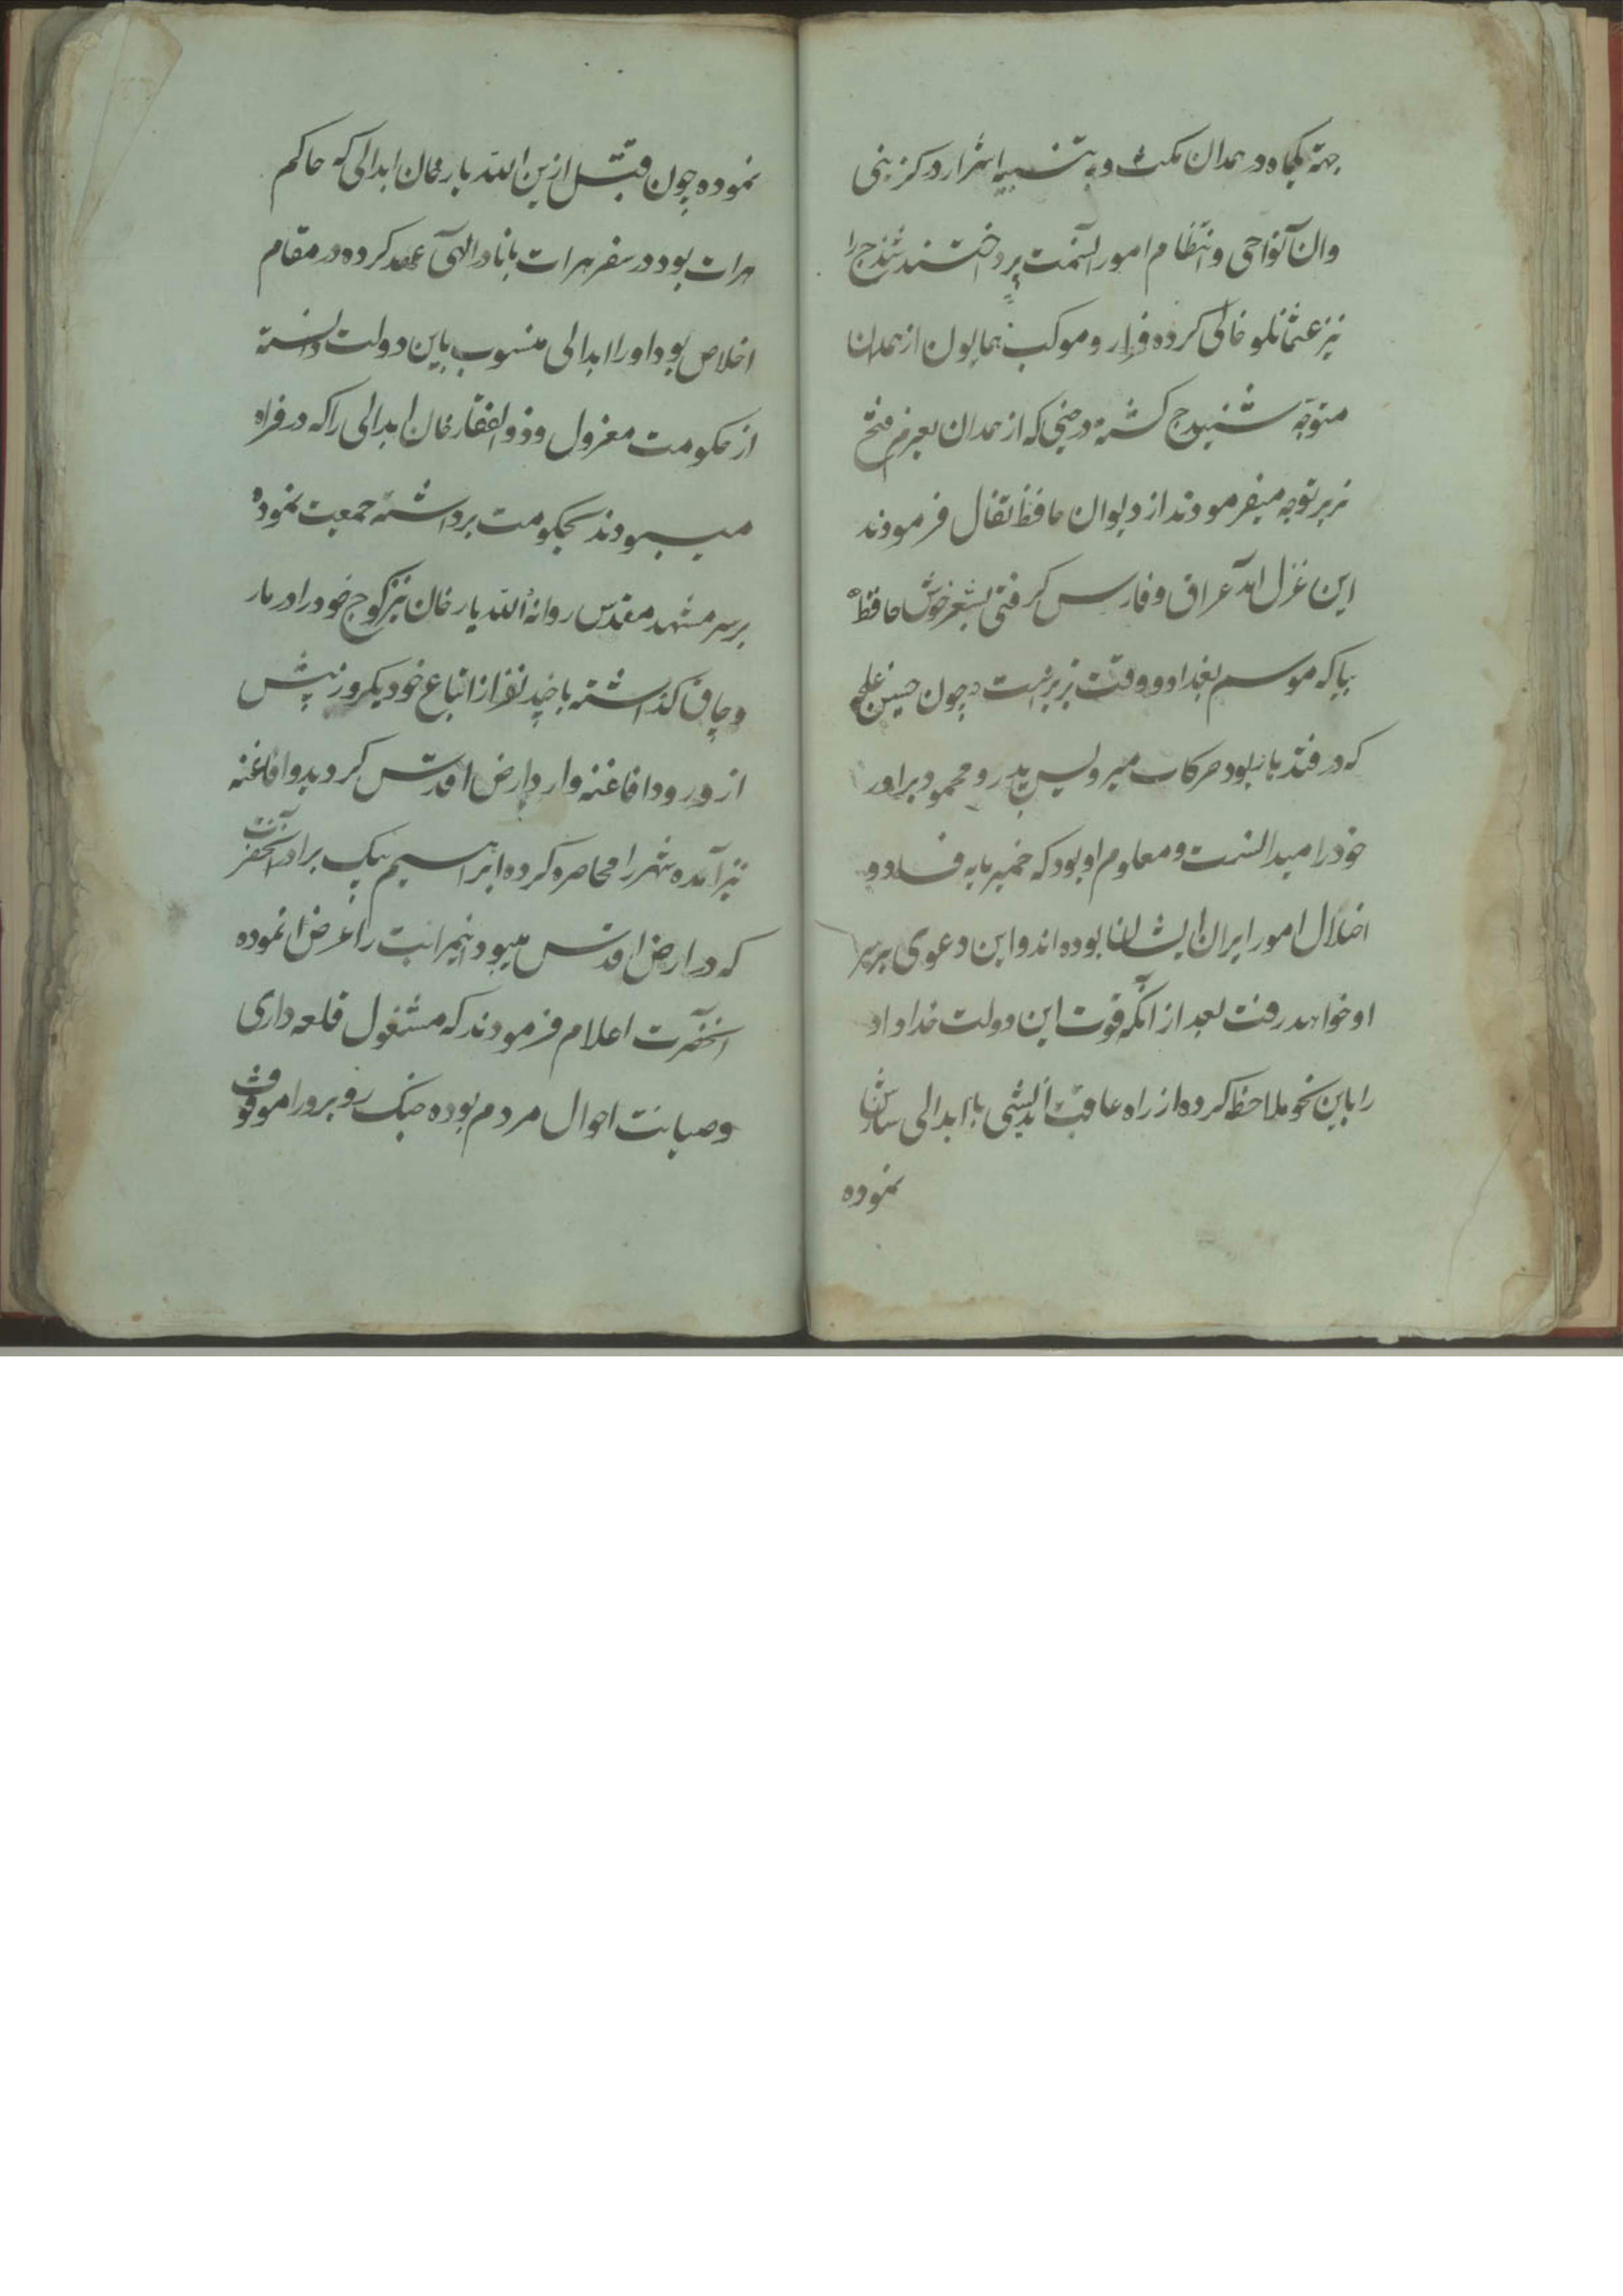 جهة یکماه در همدان مکث و به تنبیه اشرار درکزینی
وان نواحی و انتظام امور آنسمت پرداختند سنندج را
نیز عثمانلو خالی کرده فرار و موکب همایون از همدان
متوجه سنندج کشته در حینی که از همدان بعزم فتح
تبریز توجه میفرمودند از دیوان حافظ تفال فرمودند
این غزل آمد عراق و فارس کرفتی بشعر خوش حافظ
بیا که موسم بغداد و وقت تبریز است و چون حسین غلجه
که در قندهار بود حرکات میرویس پدر و محمود برادر
خود را میدانست و معلوم او بود که خمیر مایه فساد و
اختلال امور ایران ایشان بوده اند و این دعوی بر سر
او خواهد رفت بعد از آنکه قوت این دولت خداداد
را باین نحو ملاحظه کرده از راه عاقبت اندیشی با ابدالی سازش
نموده
نموده چون قبل ازین الله یار خان ابدالی که حاکم
هرات بود در سفر هرات با نادر الهی عهد کرده در مقام
اخلاص بود او را ابدالی منسوب باین دولت دانسته
از حکومت معزول و ذوالفقار خان ابدالی را که در فراه
میبودند بحکومت برداشته جمعیت نموده
بر سر مشهد مقدس روانه الله یار خان نیز کوچ خود را در مار
وچاق کذاشته با چند نفر از اتباع خود یکروز پیش
از ورود افاغنه وارد ارض اقدس کردید و افاغنه
نیز آمده شهر را محاصره کرده ابراهیم بیک برادر آنحضرت
که در ارض اقدس میبود اینمراتب را عرض نموده
آنحضرت اعلام فرمودند که مشغول قلعه داری
وصیانت احوال مردم بوده جنک روبرو را موقوف